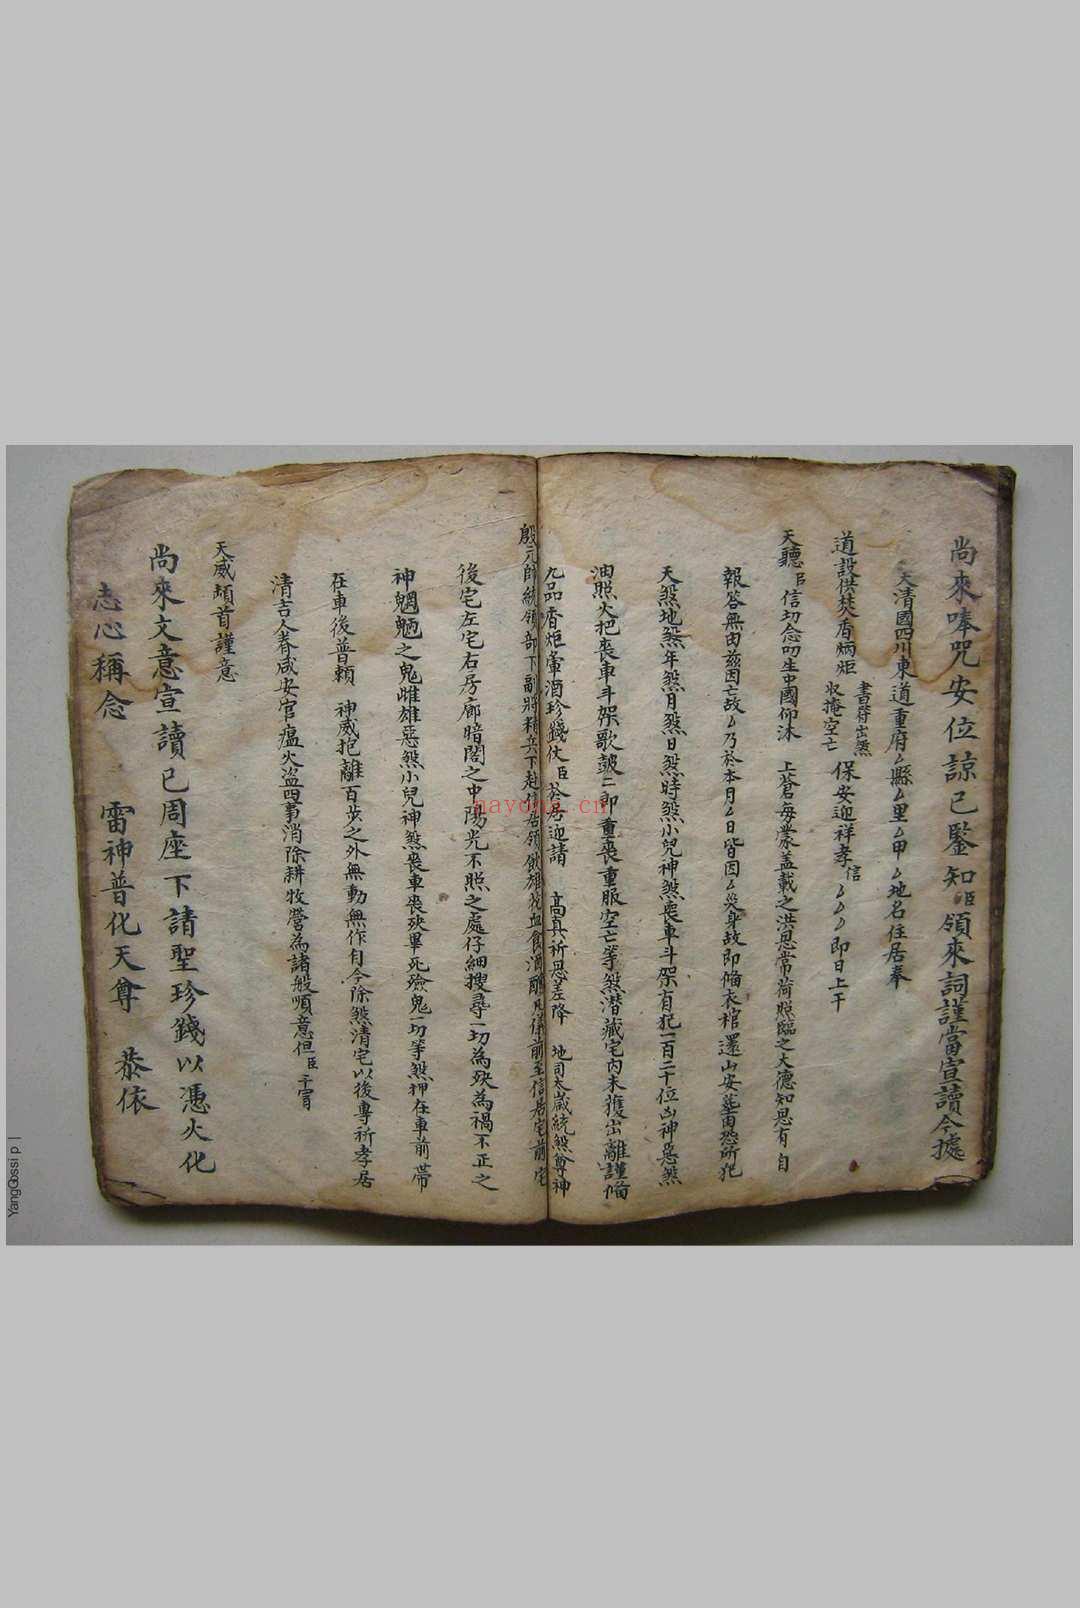 尚來唪咒安位諒已鑒知臣領來詞謹當宣讀今據
大清國四川東道重府厶縣厶里厶甲厶地名住居奉
道設供焚香炳炬 書符出煞 收掩空亡 保安迎祥孝信厶厶厶即日上干
天聽臣信切念叨生中國仰沐 上蒼每蒙盖載之洪恩常荷照臨之大德知恩有自
報答無由兹因亡故厶乃於本月厶日皆因厶災身故即備衣棺還山安墓由恐所犯
天煞地煞年煞月煞日煞時煞小兒神煞喪車斗架有犯一百二十位凶神惡煞
油照火把喪車斗架歌皷二郎重喪重服空亡等煞潜藏宅内未獲出離謹備
九品香炬葷酒珍錢仗臣荅居迎請 高真祈恩差降 地司太歲統煞尊神
殷元帥統領部下副將精兵下赴信居領飲雄花血食酒醴凡儀前至信居宅前宅
後宅左宅右房廊暗閣之中陽光不照之處仔細搜尋一切為殃為禍不正之
神魍魎之鬼雌雄惡煞小兒神煞喪車喪殃畢死殮鬼一切等煞押在車前帶
在車後普賴 神威把離百步之外無動無作自今除煞清宅以後專祈孝居
清吉人眷咸安官瘟火盗四事消除耕牧營為諸般順意但臣干冐
天威頓首謹意
尚來文意宣讀已周座下請聖珍錢以憑火化
志心稱念 雷神普化天尊 恭依
nayona.cn
YangGossi p |